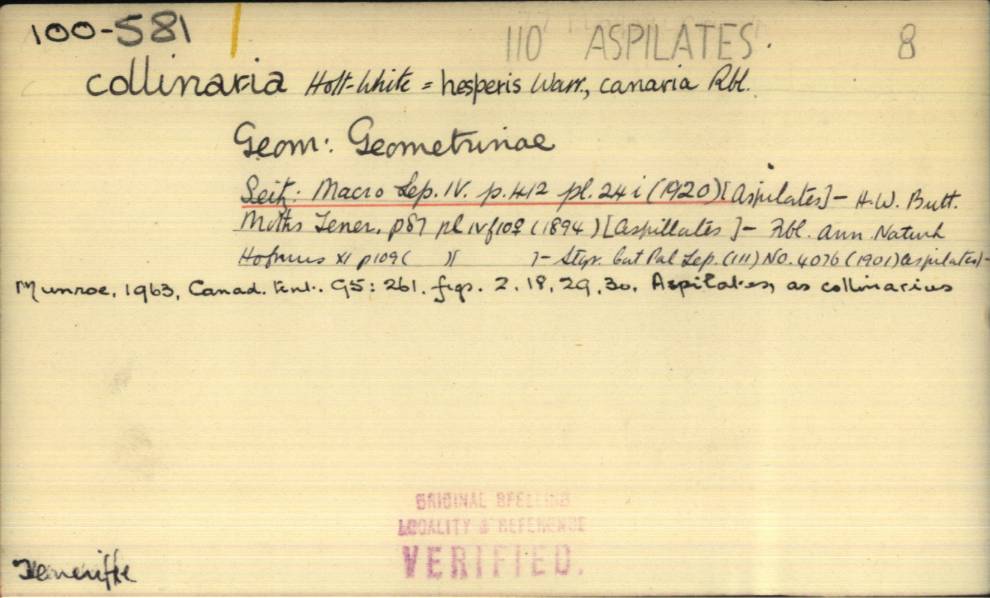 100-581 110 ASPILATES. 8
collinaria Holt-White = hesperis Warr., canaria Rbl.
Geom: Geometrinae
Seitz: Macro Lep. IV. p.412 pl. 24 i (1920) [Aspilates] - H.W. Butt.
Moths Tener. p87 pl IV f10♀ (1894) [Aspillates] - Rbl. Ann. Naturh
Hofmus XI p109 ( )[ ] - Stgr. Cat Pal Lep. (III) No. 4076 (1901) [aspilates] -
Munroe, 1963, Canad. Ent. 95: 261. figs. 2, 18, 29, 30. Aspilates, as collinarius
ORIGINAL SPELLING
LOCALITY & REFERENCE
VERIFIED.
Teneriffe